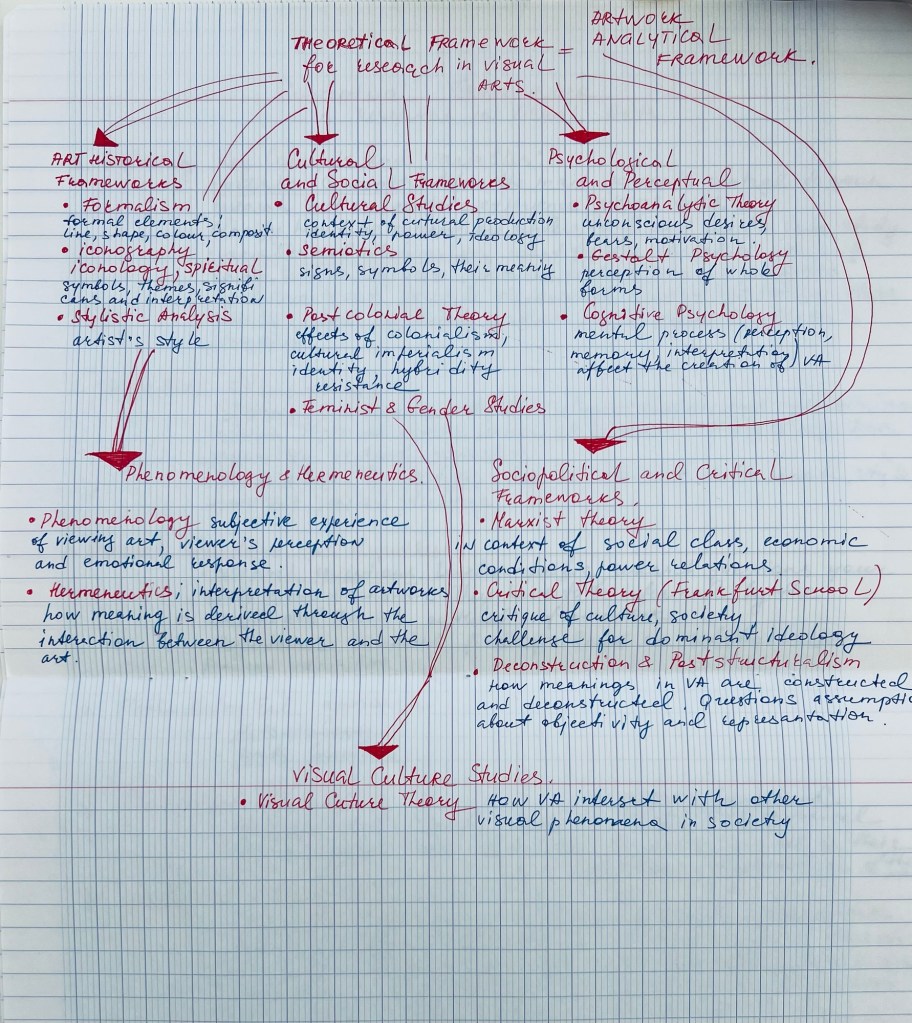 THEORETICAL FRAMEWORK = ARTWORK
for research in visual ANALYTICAL
ARTS. FRAMEWORK.
ART HISTORICAL
FRAMEWORKS
• Formalism
formal elements;
line, shape, colour, composit
• iconography
iconology, spiritual
symbols, themes, signifi
cans and interpretation
• Stylistic Analysis
artist's style
Cultural
and Social Frameworks
• Cultural Studies
context of cultural production
identity, power, ideology
• Semiotics
signs, symbols, their meaning
• Post colonial Theory
effects of colonialism,
cultural imperialism
identity, hybridity
resistance
• Feminist & Gender Studies
Psychological
and Perceptual
• Psychoanalytic Theory
unconscious desires,
motivation.
• Gestalt Psychology
perception of whole
forms
• Cognitive Psychology
mental process (perception,
memory, interpretation)
affect the creation of VA
Phenomenology & Hermeneutics.
• Phenomenology subjective experience
of viewing art, viewer's perception
and emotional response.
• Hermeneutics; interpretation of artworks
how meaning is derived through the
interaction between the viewer and the
art.
Sociopolitical and Critical
Frameworks.
• Marxist theory
in context of social class, economic
conditions, power relations.
• Critical Theory (Frankfurt School)
critique of culture, society
challenge for dominant ideology
• Deconstruction & Poststructuralism
how meanings in VA are constructed
and deconstructed. Questions assumptio
about objectivity and represantation.
Visual Culture Studies.
• Visual Cuture Theory How VA interset with other
visual phenomena in society